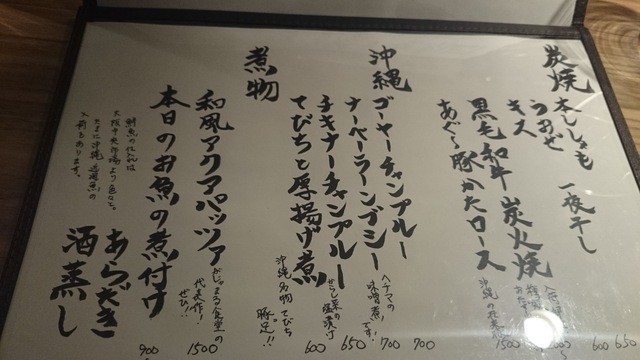 炭焼
大ししゃも 一夜干し 650
うおぜ 600
キス
黒毛和牛 炭火焼
あぐー豚かたロース
沖縄
ゴーヤーチャンプルー 700
ナーベーラーンブシー 700
ヘチマの
味噌煮です!
チキナーチャンプルー 650
からし菜の
塩漬け
てびちと厚揚げ煮 600
沖縄名物 てびち
豚足!!
煮物
和風アクアパッツァ 1500
ざしゃまる食堂の
代表作!
ぜひ!!
本日のお魚の煮付け 900
あらだき
酒蒸し
鮮魚の仕入は
大阪中央市場より色々。
たまに沖縄近海魚の
入荷もあります。